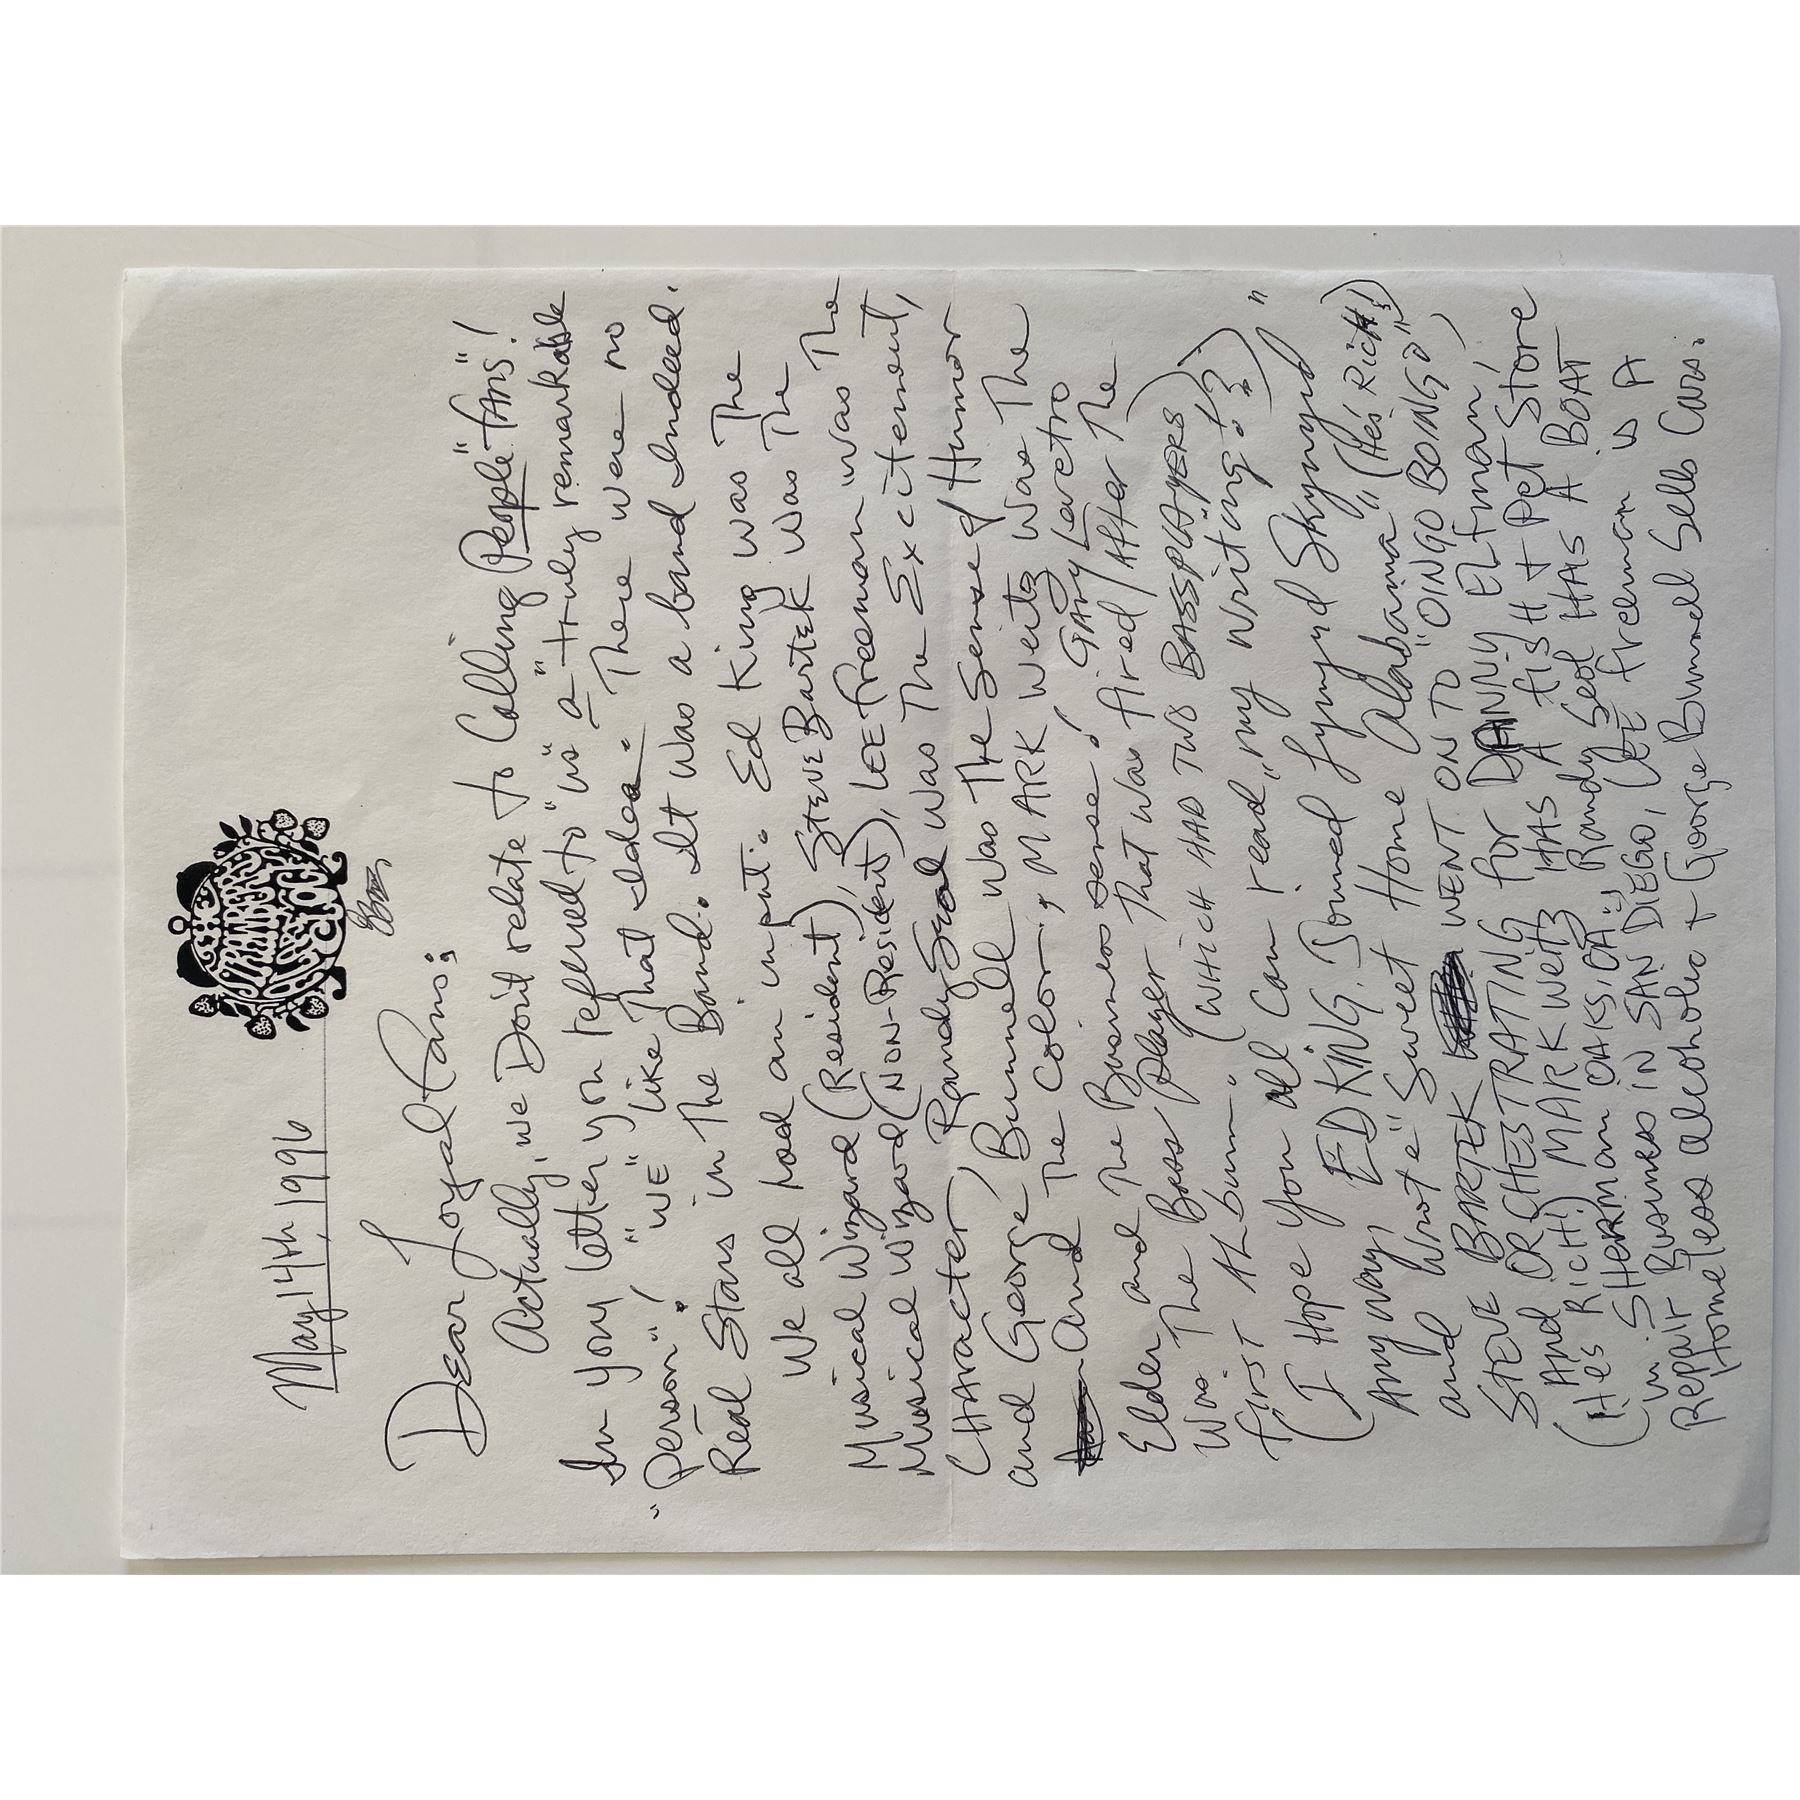 STRAWBERRY
ALARM
CLOCK
May 14th, 1996
Dear Loyal Fans:
Actually, we Don't relate to Calling People "fans"!
In your letter you referred to "us" as "a truly remarkable
"person"! "WE" like That Idea. There were no
Real Stars in The Band. It was a band Indeed.
We all had an input: Ed King was The
Musical Wizard (Resident), STEVE BARTEK was The
Musical Wizard (NON-Resident), LEE freeman was The
CHARACTER, Randy Seol was The Excitement,
and George Bunnell was The Sense of Humor
and The Color; MARK Weitz was The
Elder and The Business sense! GARY Lovetro
was The Bass player That was fired/After The
first Album. (WHICH HAD TWO BASSPLAYERS)
(I Hope you all can read "my writing"!?)
Anyway, ED KING Joined Lynyrd Skynyrd
and Wrote "Sweet Home Alabama" (He's RICH!)
STEVE BARTEK WENT ON TO "OINGO BOINGO",
AND ORCHESTRATING for DANNY ELFMAN,
(He's RICH!) MARK Weitz HAS A fisH + Pet Store
in SHERMAN OAKS, CA; Randy Seol HAS A BOAT
Repair Business IN SAN DIEGO, LEE freeman is A
Homeless alcoholic + George Bunnell Sells Cars.